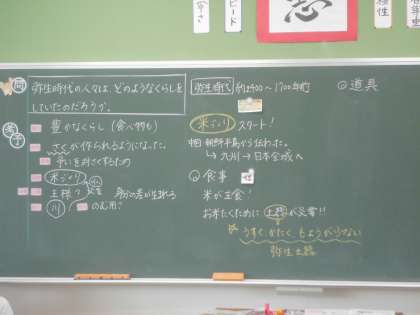 問
弥生時代の人々は、どのようなくらしを
していたのだろうか。
予
豊かなくらし（食べ物も）
さくが作られるようになった。
争いを対さくするため
米づくり
王様？
身分の差が生まれる
川
のん用？
弥生時代 約2400〜1700年前
米づくり スタート！
中国、朝鮮半島から伝わった。
↳ 九州 → 日本全域へ
食事
米が主食！
お米たくために土器が必要!!
うすく かたく もようが少ない
弥生土器
道具
ピード
極性